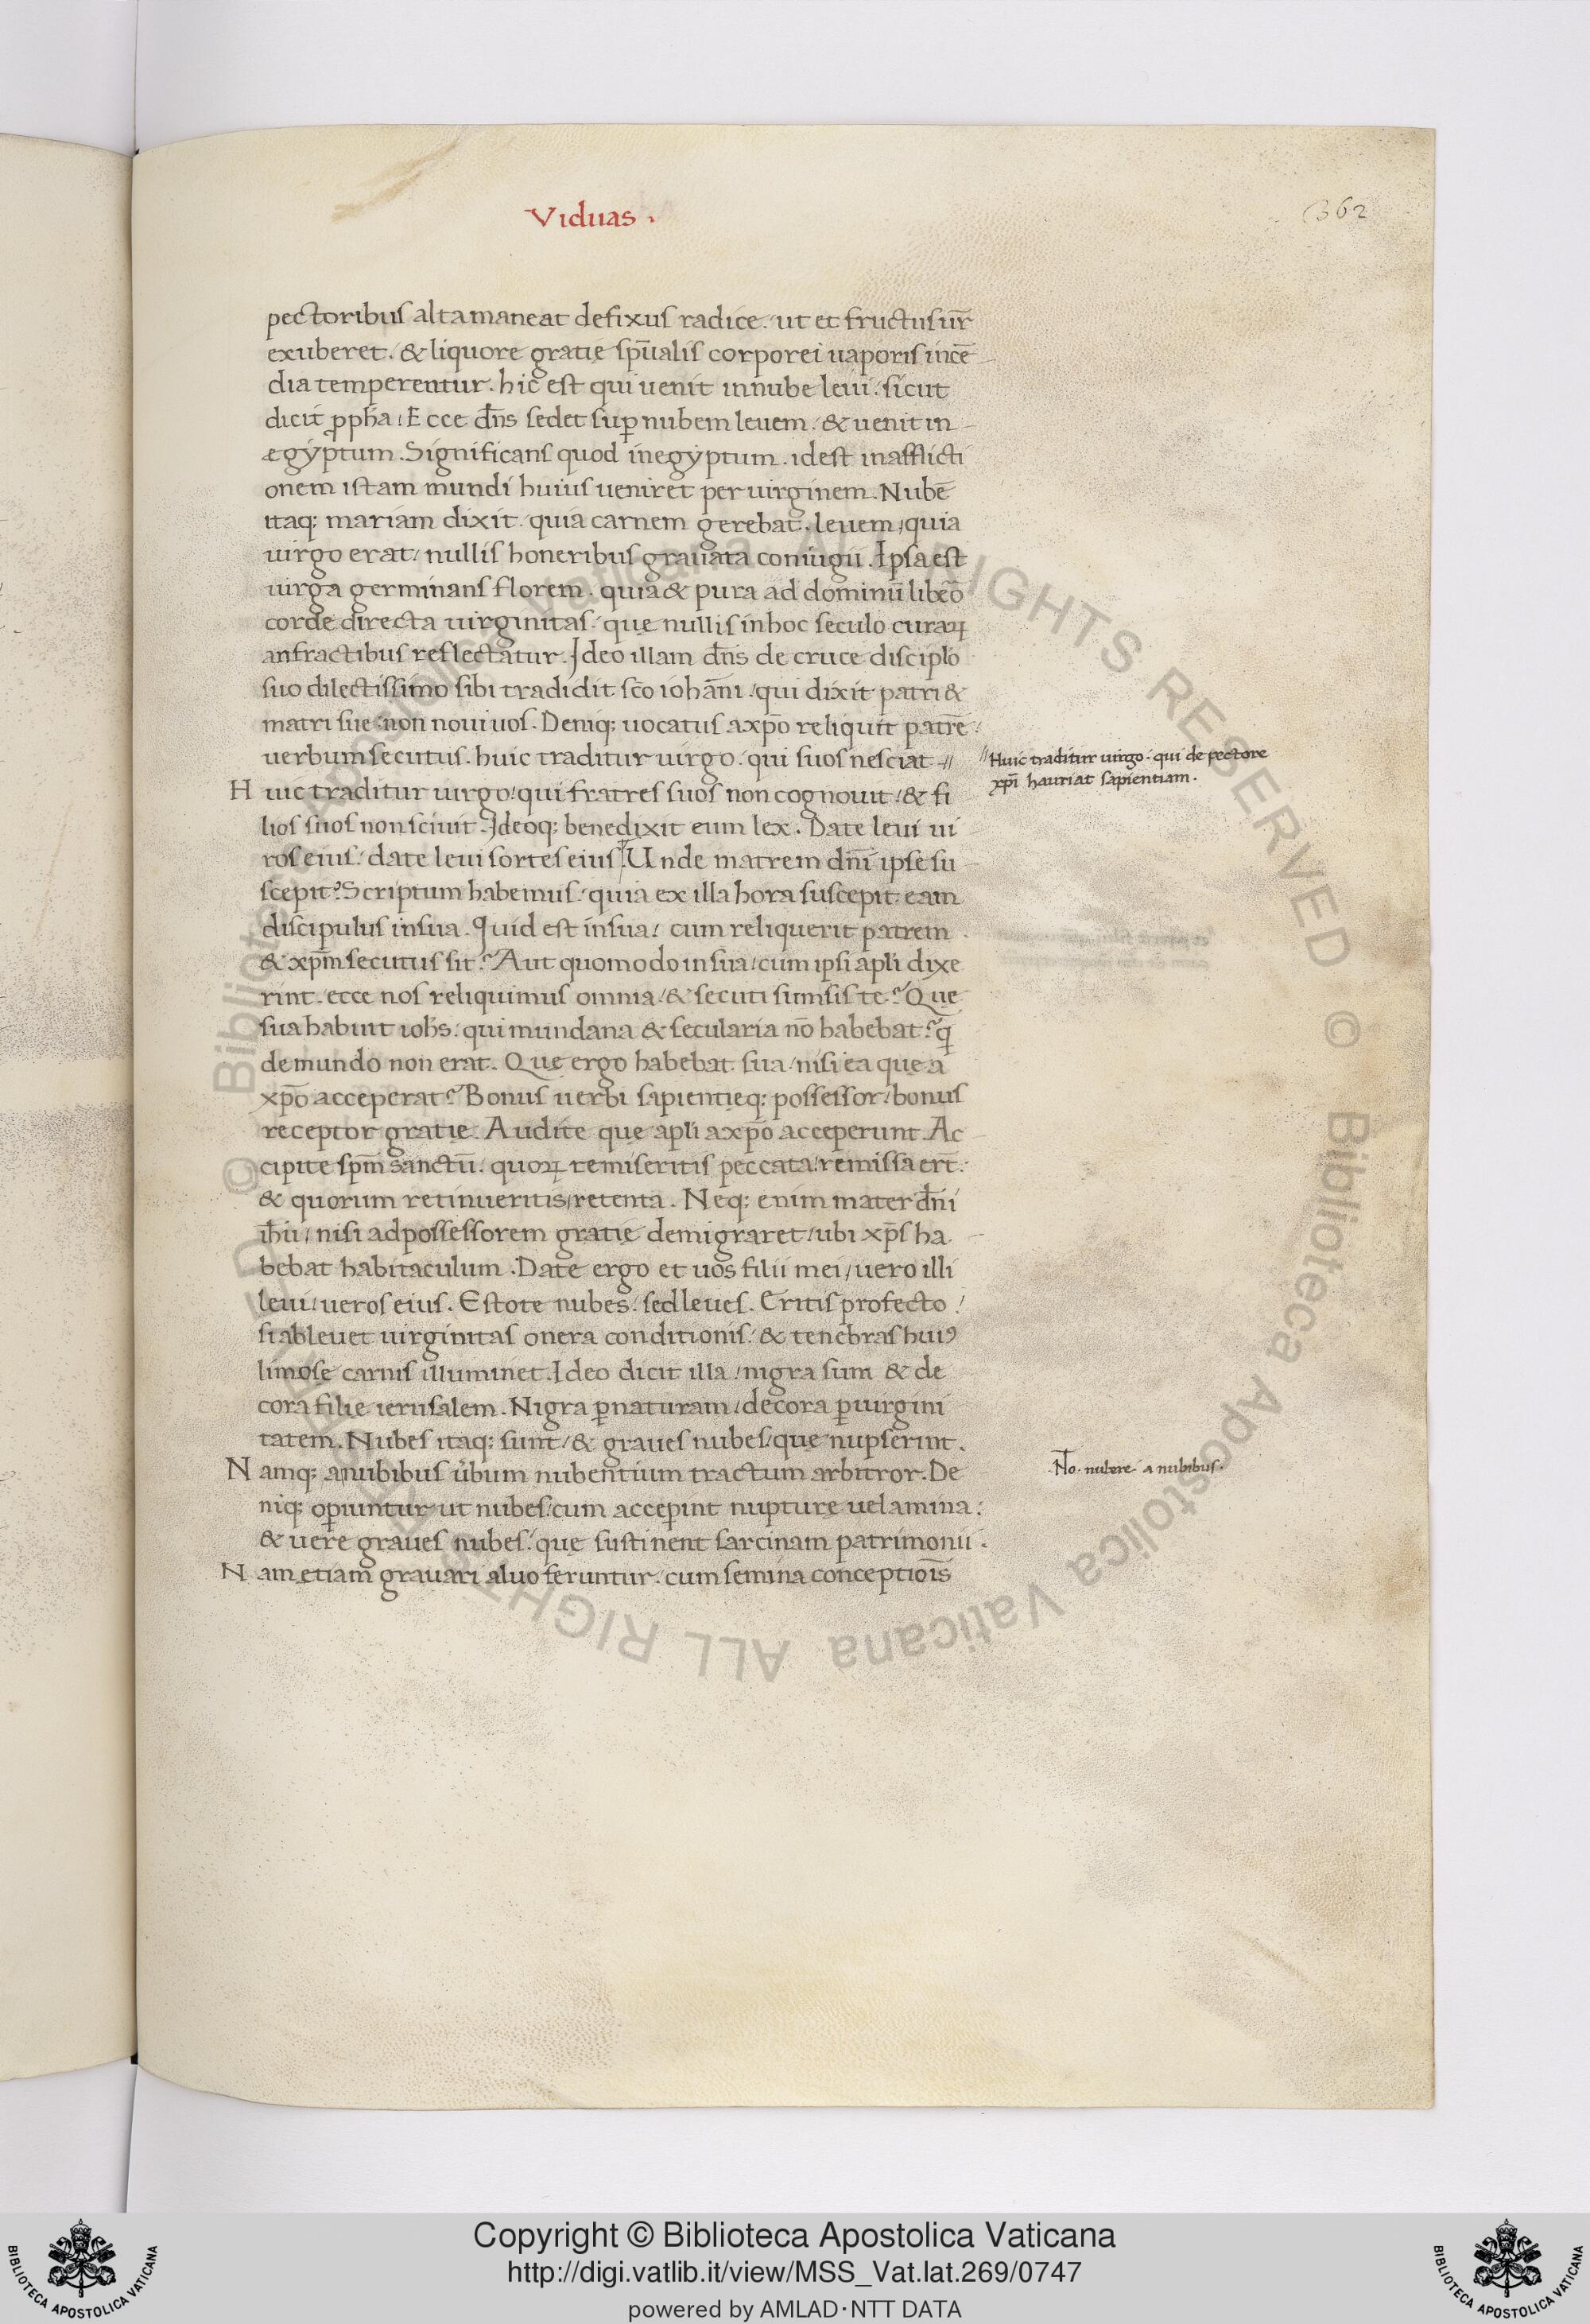 Viduas.
362
pectoribus alta maneat defixus radice. ut et fructus ur̄
exuberet. & liquore gratię sp̄ualis corporei uaporis incē
dia temperentur. hic est qui uenit in nube leui. sicut
dicit ꝓph̄a. Ecce dn̄s sedet sup̄ nubem leuem. & uenit in
ęgyptum. Significans quod in egyptum. idest in afflicti
onem istam mundi huius ueniret per uirginem. Nubē
itaq; mariam dixit. quia carnem gerebat. leuem, quia
uirgo erat, nullis honeribus grauata coniugii. Ipsa est
uirga germinans florem. quia & pura ad dominū liberō
corde directa uirginitas. quę nullis in hoc seculo curaꝝ
anfractibus reflectatur. Ideo illam dn̄s de cruce disciplō
suo dilectissimo sibi tradidit scō iohāni. qui dixit patri &
matri suę non noui uos. Deniq; uocatus a xp̄o reliquit patrē
uerbum secutus. huic traditur uirgo. qui suos nesciat //
// Huic traditur uirgo. qui de pectore
xp̄i hauriat sapientiam.
Huic traditur uirgo. qui fratres suos non cognouit. & fi
lios suos non sciuit. Ideoq; benedixit eum lex. Date leui ui
ros eius. date leui sortes eius. Unde matrem dn̄i ipse su
scepit? Scriptum habemus. quia ex illa hora suscepit eam
discipulus in sua. Quid est in sua. cum reliquerit patrem
& xp̄m secutus sit? Aut quomodo in sua, cum ipsi apl̄i dixe
rint. ecce nos reliquimus omnia. & secuti sumus te? Quę
sua habuit ioh̄s. qui mundana & secularia nō habebat? q̄
de mundo non erat. Quę ergo habebat sua, nisi ea que a
xp̄o acceperat? Bonus uerbi sapientięq; possessor, bonus
receptor gratię. Audite quę apl̄i a xp̄o acceperunt. Ac
cipite sp̄m sanctū. quoꝝ remiseritis peccata, remissa ert̄.
& quorum retinueritis, retenta. Neq; enim mater dn̄i
ih̄u, nisi ad possessorem gratię demigraret, ubi xp̄s ha
bebat habitaculum. Date ergo et uos filii mei, uero illi
leui, ueros eius. Estote nubes. sed leues. Eritis profecto,
si ableuet uirginitas onera conditionis. & tenebras huiꝰ
limosę carnis illuminet. Ideo dicit illa, nigra sum & de
cora filię ierusalem. Nigra ꝑ naturam, decora ꝑ uirgini
tatem. Nubes itaq; sunt, & graues nubes, quę nupserint.
Namq; a nubibus u̇bum nubentium tractum arbitror. De
.No. nubere a nubibus.
niq; oꝑiuntur ut nubes, cum acceꝑint nupturę uelamina.
& uere graues nubes. quę sustinent sarcinam patrimonii.
Nam etiam grauari aluo feruntur. cum semina conceptiōis
© Biblioteca Apostolica Vaticana ALL RIGHTS RESERVED © Biblioteca Apostolica Vaticana ALL RIGHTS RESERVED
Copyright © Biblioteca Apostolica Vaticana
http://digi.vatlib.it/view/MSS_Vat.lat.269/0747
powered by AMLAD·NTT DATA
BIBLIOTECA APOSTOLICA VATICANA
BIBLIOTECA APOSTOLICA VATICANA